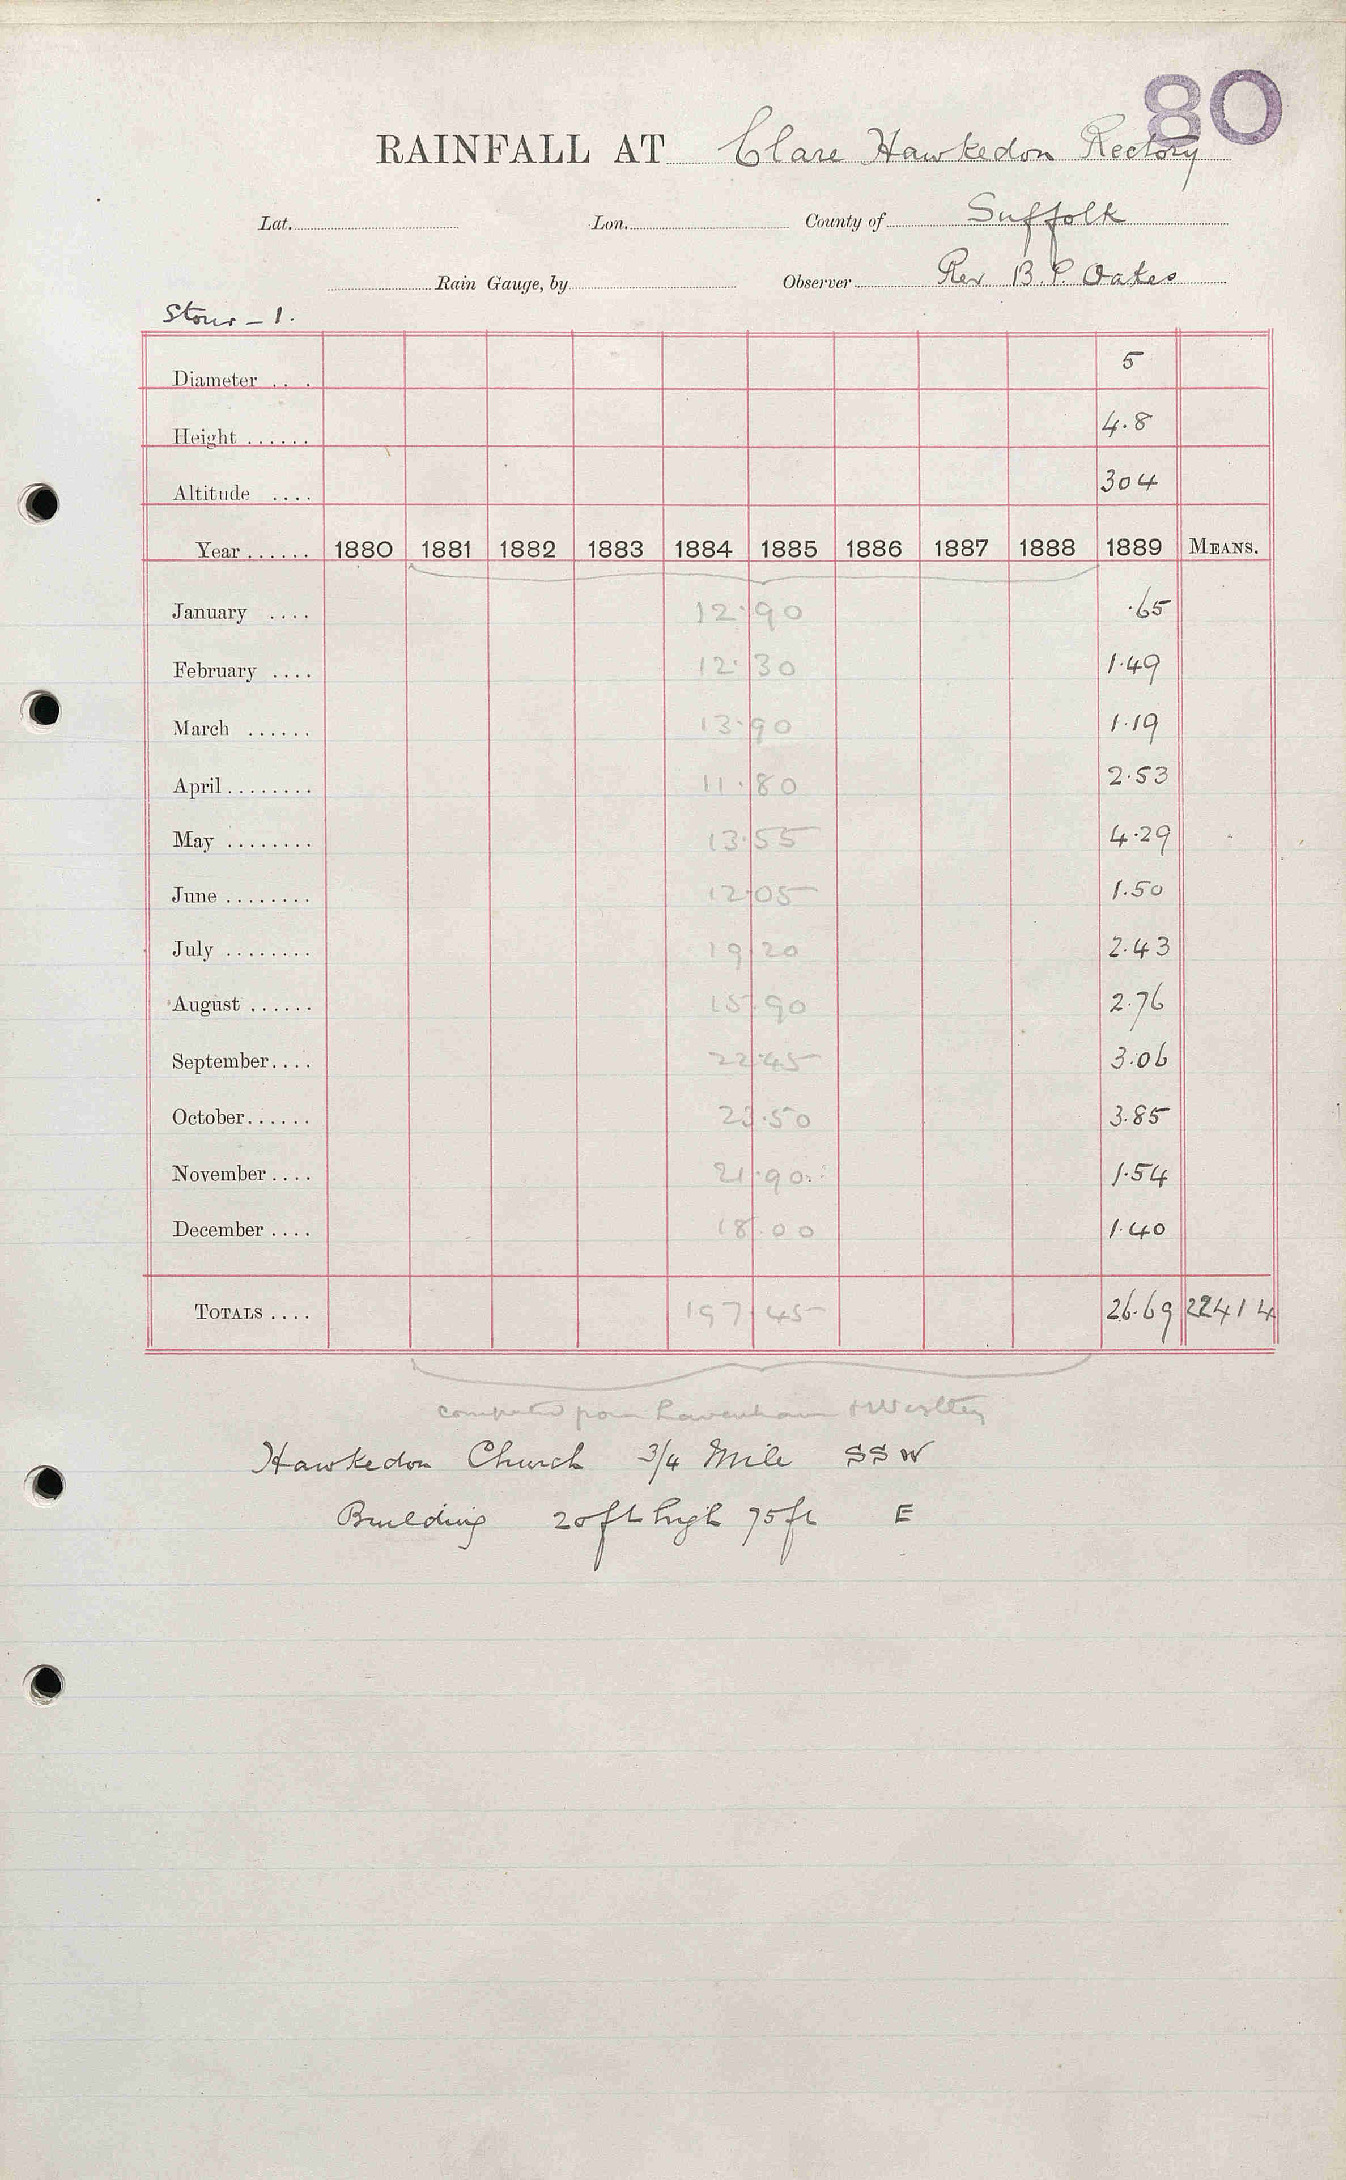 80
RAINFALL AT Clare Hawkedon Rectory
Lat. Lon. County of Suffolk
Rain Gauge, by Observer Rev B. P. Oakes
Stour - 1.
Diameter . . . 5
Height ...... 4.8
Altitude .... 304
Year ...... 1880 1881 1882 1883 1884 1885 1886 1887 1888 1889 MEANS.
January .... 12.90 .65
February .... 12.30 1.49
March ...... 13.90 1.19
April ........ 11.80 2.53
May ........ 13.55 4.29
June ........ 12.05 1.50
July ........ 19.20 2.43
August ...... 15.90 2.76
September.... 22.45 3.06
October...... 23.50 3.85
November .... 21.90 1.54
December .... 18.00 1.40
TOTALS .... 197.45 26.69 22414
computed from Lavenham &
Hawkedon Church 3/4 Mile SSW
Building 20ft high 75ft E